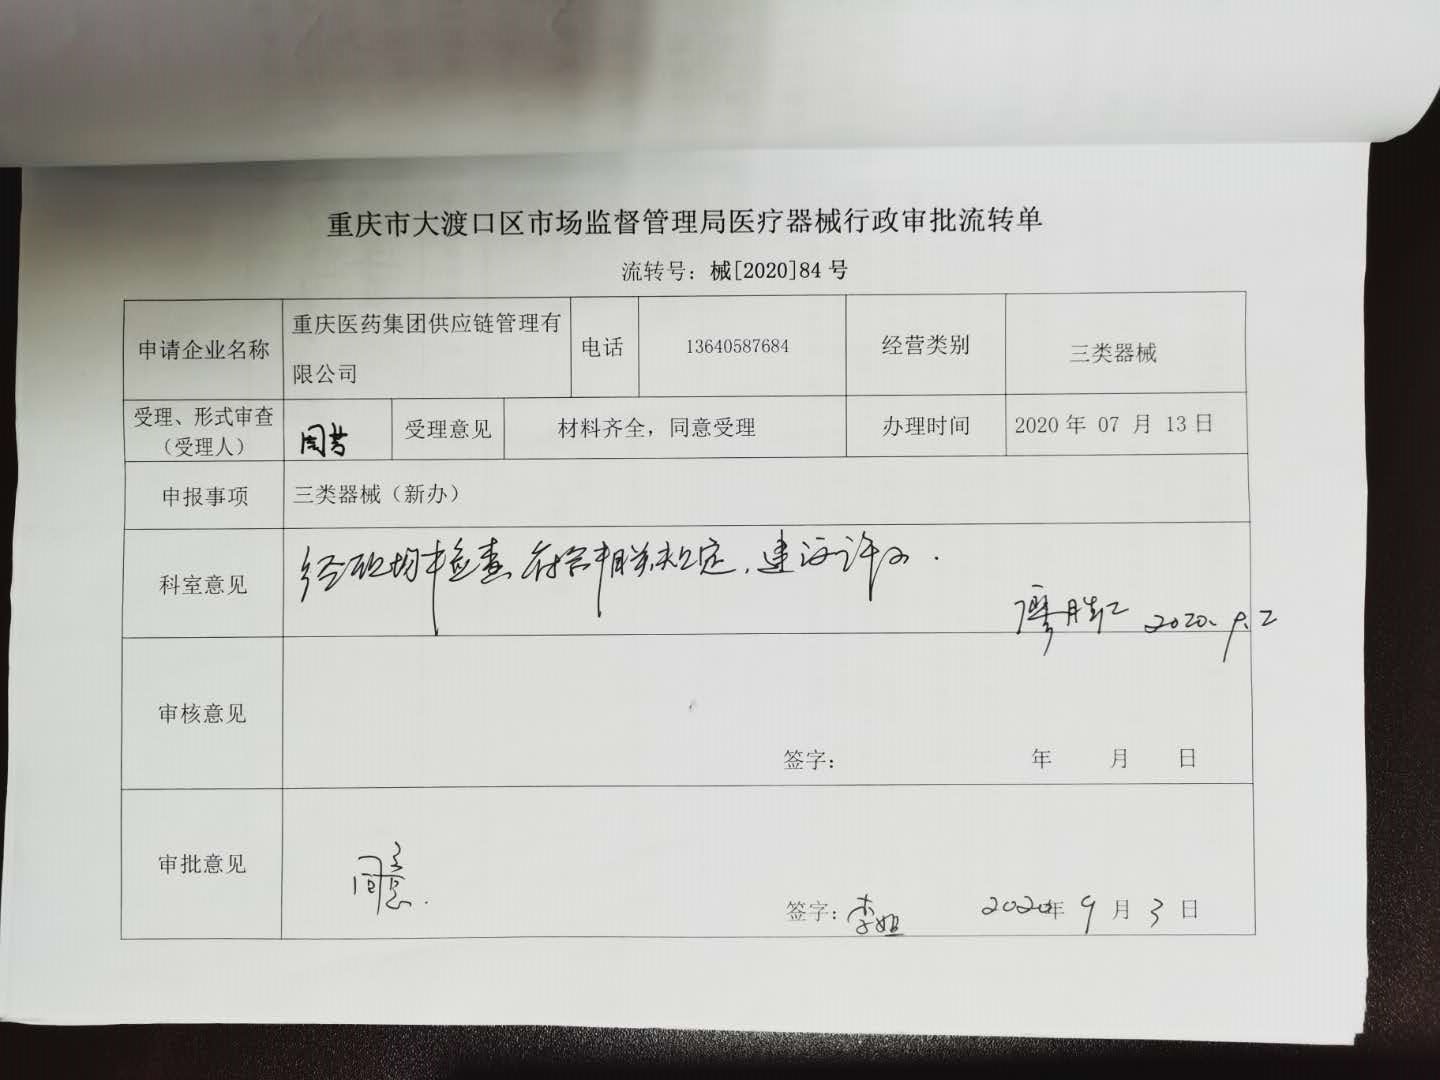 重庆市大渡口区市场监督管理局医疗器械行政审批流转单
流转号：械[2020]84 号
申请企业名称
重庆医药集团供应链管理有
限公司
电话
13640587684
经营类别
三类器械
受理、形式审查
（受理人）
受理意见
材料齐全，同意受理
办理时间
2020 年 07 月 13 日
申报事项
三类器械（新办）
科室意见
经现场检查，符合相关规定，建议许可.
2020.9.2
审核意见
签字：
年 月 日
审批意见
同意.
签字：
2020年 9 月 3 日